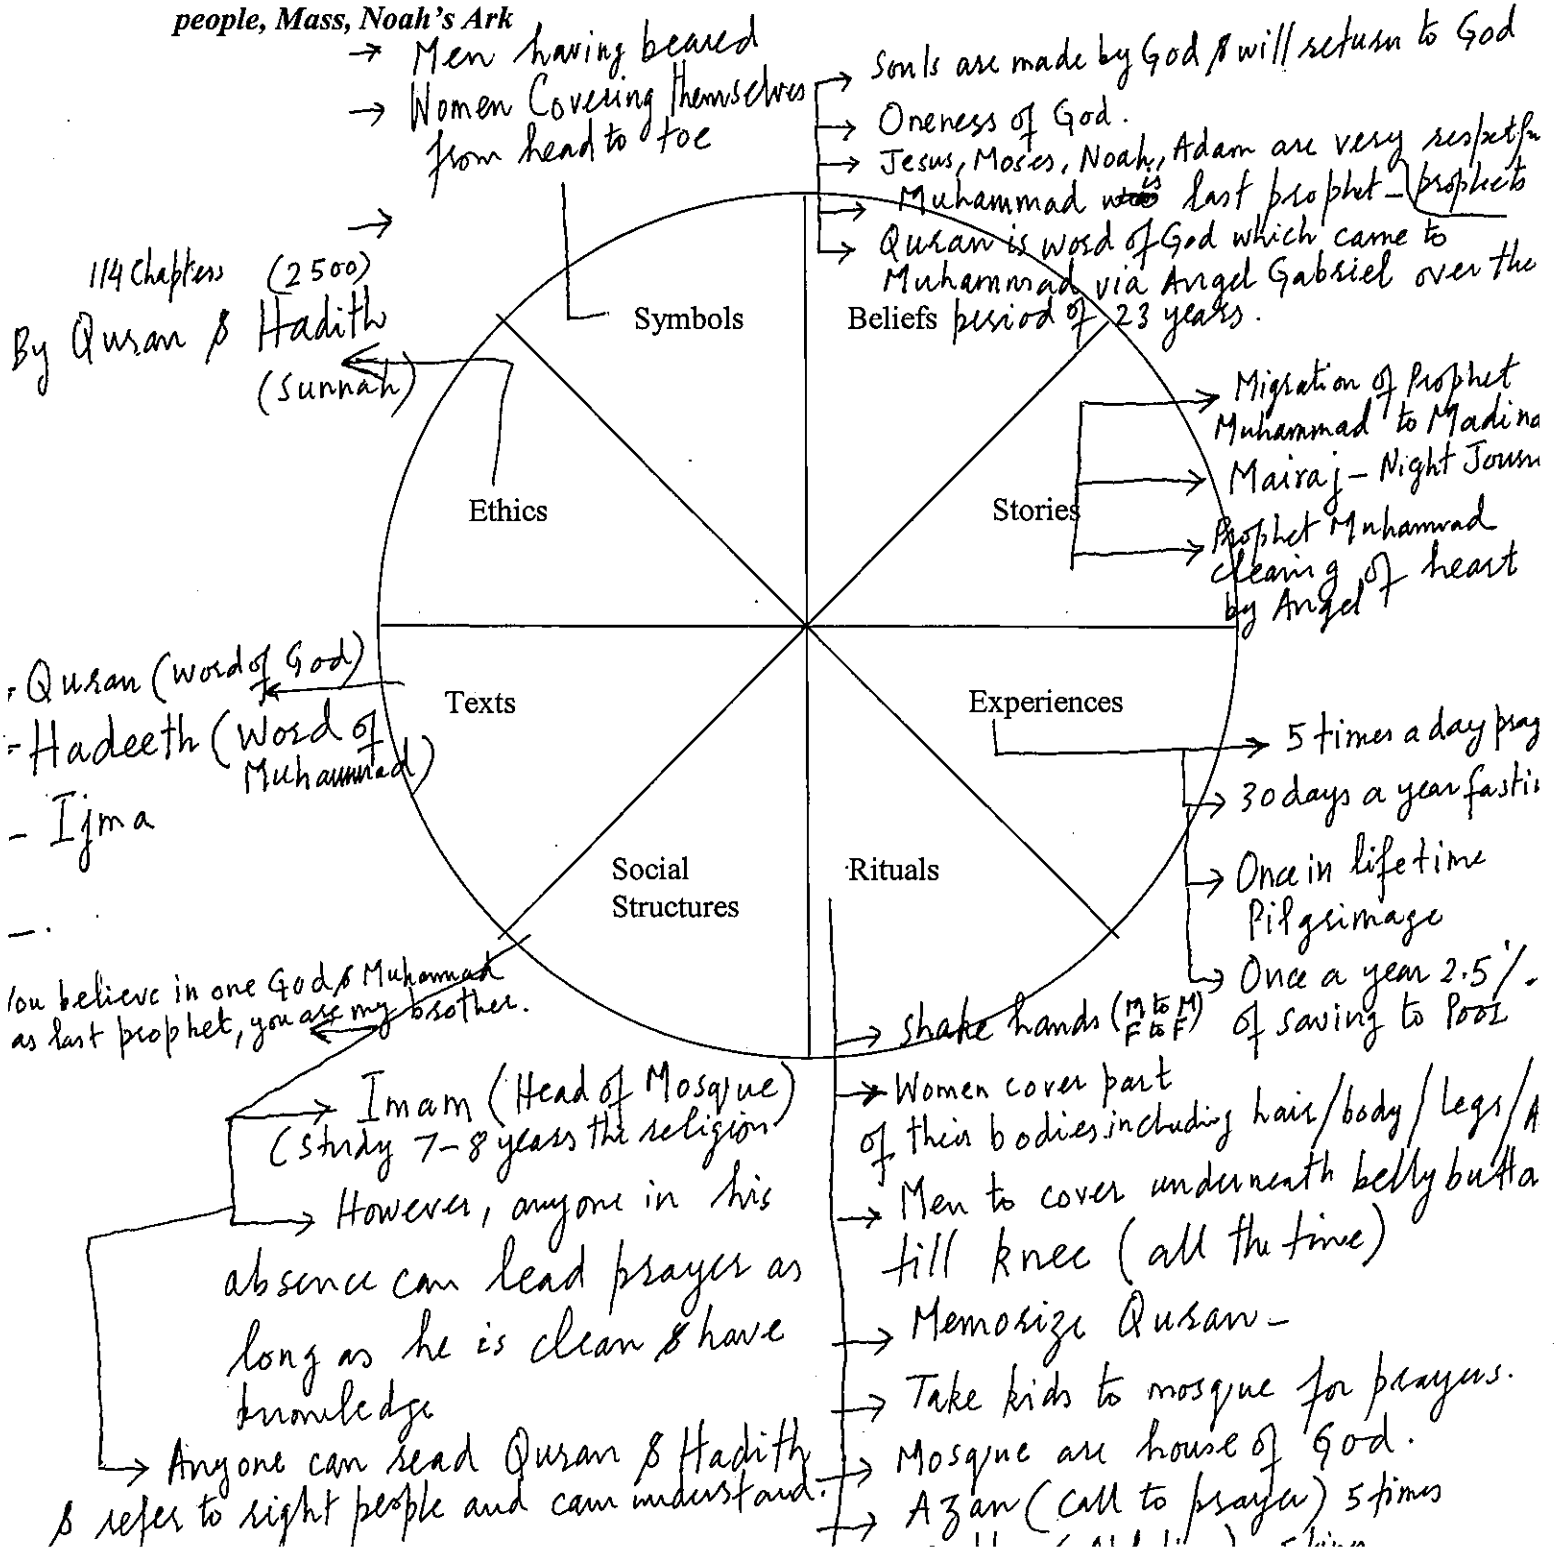 people, Mass, Noah's Ark
→ Men having beared
→ Women Covering themselves
from head to toe
→
Symbols
→ Souls are made by God & will return to God
→ Oneness of God.
→ Jesus, Moses, Noah, Adam are very
prophets
→ Muhammad is last prophet -
→ Quran is word of God which came to
Muhammad via Angel Gabriel over the
period of 23 years.
Beliefs
114 Chapters (2500)
By Quran & Hadith
(Sunnah)
Ethics
Stories
→ Migration of Prophet
Muhammad to
→ Mairaj - Night
→ Prophet Muhammad
cleaning of heart
by Angel
- Quran (word of God)
- Hadeeth (Word of
Muhammad)
- Ijma
- .
Texts
Experiences
→ 5 times a day
→ 30 days a year
→ Once in lifetime
Pilgrimage
→ Once a year 2.5%
of saving to Poor
Social
Structures
you believe in one God & Muhammad
as last prophet, you are my brother.
→ Imam (Head of Mosque)
(Study 7-8 years the religion
→ However, anyone in his
absence can lead prayer as
long as he is clean & have
knowledge
→ Anyone can read Quran & Hadith
& refer to right people and can understand.
Rituals
→ shake hands (M to M)
F to F
→ Women cover part
of their bodies including hair/body/legs/
→ Men to cover underneath belly
till knee (all the time)
→ Memorize Quran -
→ Take kids to mosque for prayers.
→ Mosque are house of God.
→ Azan (call to prayer) 5 times